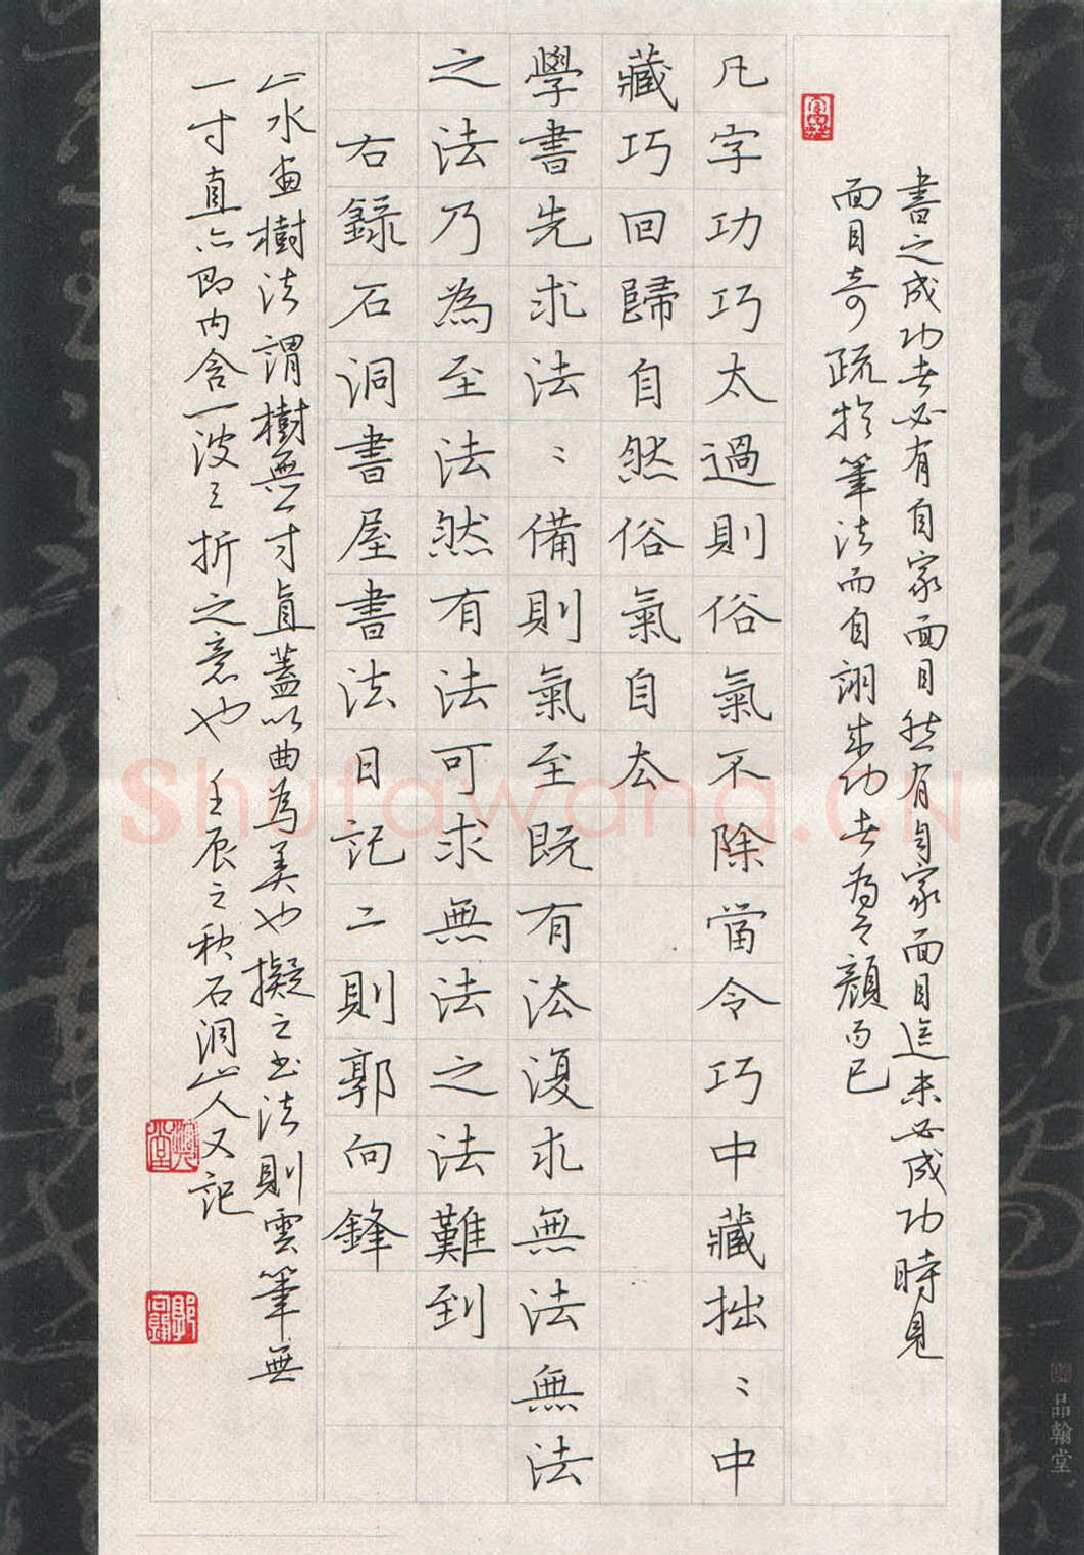 書之成功者必有自家面目然有自家面目未必成功時見
面目奇疏於筆法而自詡成功者為顏而已
凡字功巧太過則俗氣不除當令巧中藏拙〻中
藏巧回歸自然俗氣自去
學書先求法〻備則氣至既有法復求無法無法
之法乃為至法然有法可求無法之法難到
右錄石洞書屋書法日記二則郭向鋒
山水畫樹法謂樹無寸直蓋以曲為美也擬之書法則雲筆無
一寸直亦即内含一波三折之意也壬辰之秋石洞山人又記
品翰堂
Shufawang.CN